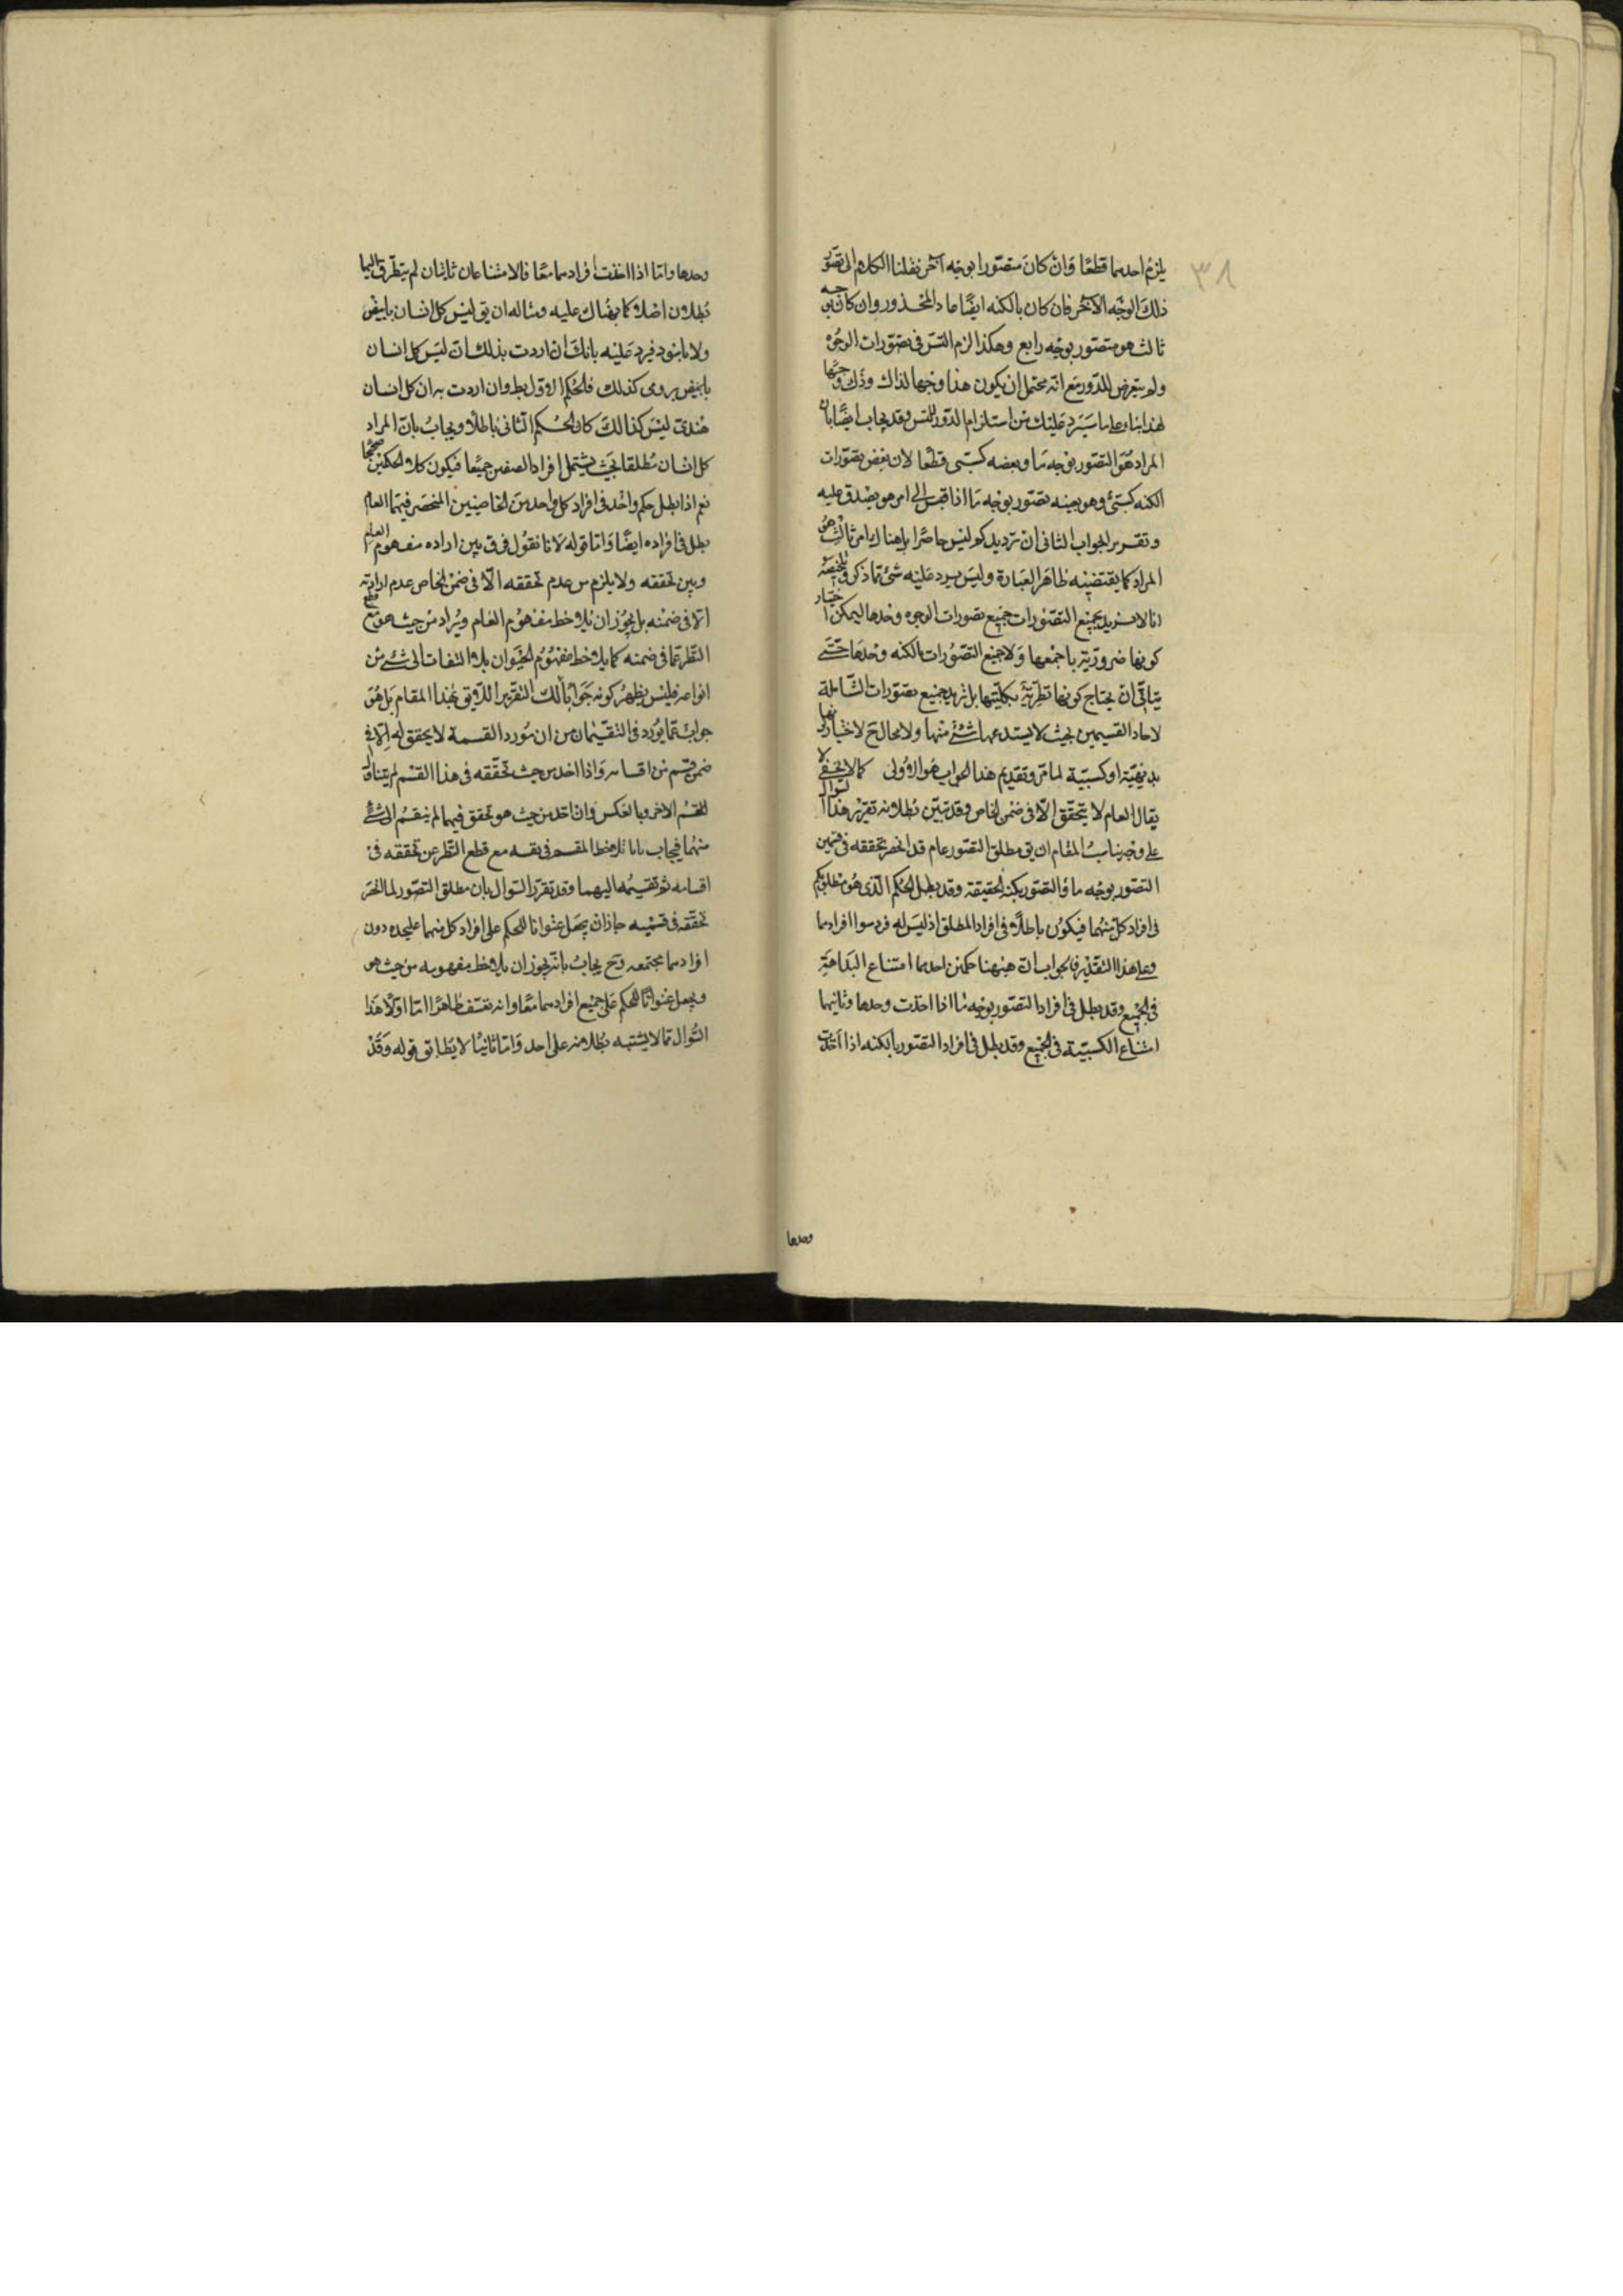 ٣٨
يلزم احدهما قطعًا وَان كانَ متصّورا بوجه آخر نقلنا الكلام الى تصوّر
ذلكَ الوجه الآخر فان كان بالكنه ايضًا عاد المحذور وان كان بوجه
ثالث هو متصّور بوجه رابع وهكذا لزم التسّ فى تصّورات الوجُوه
ولم يتعرض للدّور مَع انه يحتمل ان يكون هذا وجها لذاك وذَلك وجهًا
لهذا بناء على ما سَيَرد عَليكَ من استلزام الدّور للتسّ وقد يجاب ايضًا بان
المراد هُوَ التصّور بوَجه مَا وبعضه كسبىّ قطعًا لان بعض تصّورات
الكنه كسبّى وهو بعينه تصّور بوجه مَا اذا قيسَ الى امر هو يصْدق عليه
وتقرير الجواب الثانى انّ ترديدكم ليسَ حاصرًا بل هناك امر ثالث هُوَ
المراد كما يقتضيه ظاهَر العبَارة وليسَ يرد عَليه شئ ممّا ذكر وتلخيصُه
انا لا نريد بجميع التصّورات جميع تصورات الوجوه وحدها ليمكن اختيار
كونها ضروريّة باجمعها وَلا جميع التصّورات بالكنه وحدهَا حتّى
يتاتّى انْ يحتاج كونها نظريّة بكليّتها بل نريد جميع تصّورات الشّاملة
لاحاد القسمين بحيث لا يستد عنها شئ منها ولا مجال ح لاختيار كونها
بديهيّة او كسبيّة لما مّر وتقديم هذا الجواب هو الاولى كما لا يخفى لا
يقال العام لا يتحقّق الّا فى ضمن الخاص وقد تبيّن بُطلانه تقرير هذا السّوال
على وجه يناسبُ المقام ان يق مطلق التصّور عام قد انحصر تحققه فى قسمين
التصّور بوجه ما والتصّور بكنه الحقيقة وقد بطل الحُكم الّذى هُو مطلق بكم
فى افراد كلّ منهُما فيكوُن باطلًا فى افراد المطلق اذ ليسَ له فرد سوا افرادهما
وعلى هذا التقدير فالجواب انّ هيٰهنا حكمين احدهما امتناع البدَاهة
فى الجميع وقد بطل فى افراد التصّور بوجه مَا اذا اخذت وحدها وثانيهما
امتناع الكسبيّة فى الجميع وقد بطل فى افراد التصّور بالكنه اذا اخذت
وحدها
وحدها وامّا اذا اخذت افرادهما معًا فالامتناعان ثابتان لم يتطرّق اليهما
بُطلان اصْلا كما نبّهناك عليه ومثاله ان يق ليس كل انسان بابيض
ولا باسود فيرد عَليه بانكَ ان اردت بذلك انّ ليسَ كل انسان
بابيض رومى كذلك فالحُكم الاوّل بط وان اردت به انّ كل انسان
هنْدى ليسَ كذالكَ كان الحُكم الثانى باطلًا ويجابُ بانّ المراد
كل انسان مُطلقا بحيَث يشتمل افراد الصنفين جميعًا فيكون كلا الحكمين صحيحًا
نعم اذا بطل حكم واحْد فى افراد كل واحد من الخاصّين المنحصَر فيهما العام
بطل فى افراده ايضًا وَامّا قوله لانا نقوُل فرق بين اراده مفهوم العام
وبين تحققه ولا يلزم من عدم تحققه الّا فى ضمن الخاص عدم ارادته
الّا فى ضمْنه بل يجُوز ان يلاحظ مفهوم العَام ويُراد من حيث هو مع قطع
النّظر عمّا فى ضمنه كما يلاحظ مفهُوم الحيَوان بلا التفات الى شئ من
انواعه فليْس يظهرُ كونه جَوابًا لذلك التقرير اللّايق بهٰذا المقام بَل هُوَ
جوابٌ عمّا يُورد فى التقسيمَات من ان مُورد القسمة لا يحقق له الّا فى
ضمن قسْم من اقسامه وَاذا اخذ من حيث تحقّقه فى هذا القسْم لم يتناول
القسْم الاخر وبالعَكس وَان اخذ من حيث هو تحقق فيهما لم ينقسم الى شئ
منهُما فيجاب بانا نلاحظ المقسم فى نفسه مع قطع النّظر عن تحققه فى
اقسامه ثم تقسيمُه اليهما وقد تقرّر السّوال بان مطلق التصّور لما انحصَر
تحقّقه فى قسْميه جاز ان يجعَل عنوانا للحكم على افراد كل منهما عليحده دون
افرادهما مجتمعه وح يجابُ بانّه يجوز ان يلاحظ مفهومه من حيث هو
ويجعل عنوانًا للحكم عَلى جميع افرادهما معًا وانه تعسّف ظاهرًا امّا اولًا هذَا
السّوال ممّا لا يشتبه بُطلانه على احد وَامّا ثانيًا لا يُطابق قوله وَقَدْ